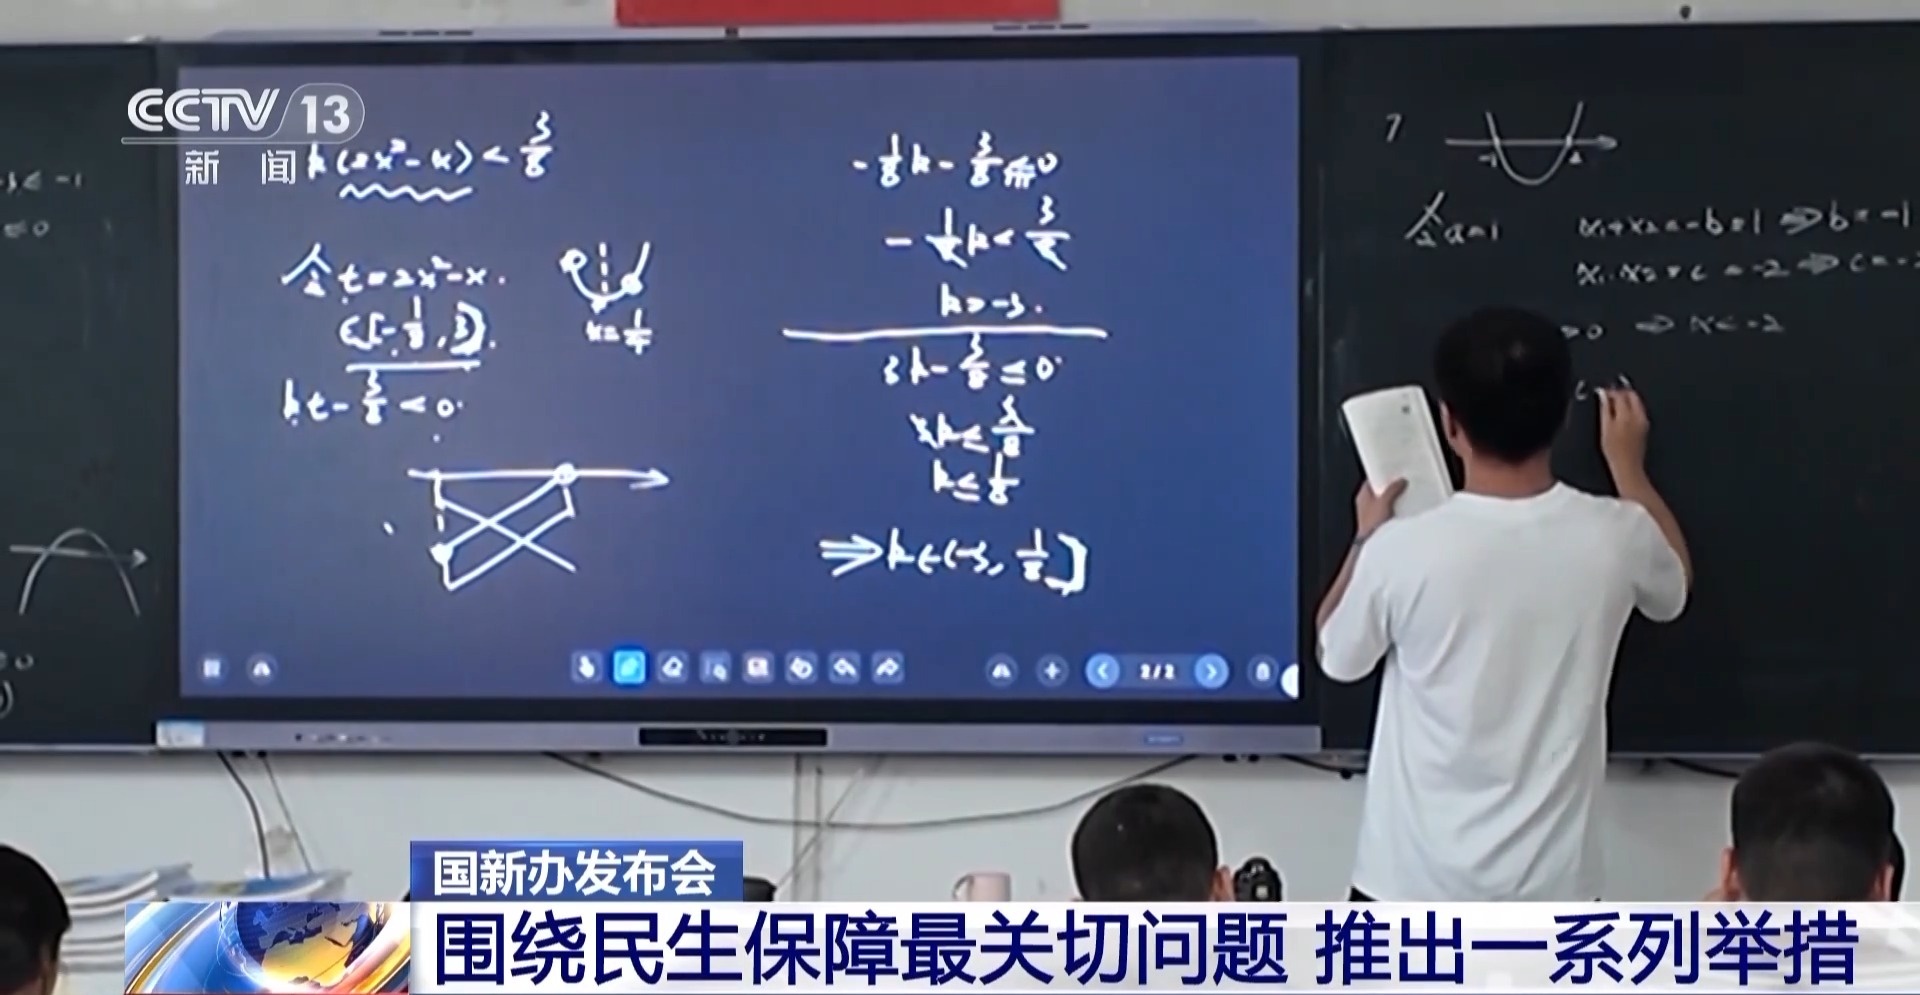 CCTV 13
新闻
k(2x²-x) < 3/8
令 t=2x²-x.
∈[-1/8, 3).
x=1/4
kt-3/8<0.
-1/8k-3/8<0
-1/8k<3/8
k>-3.
3k-3/8≤0
3k≤3/8
k≤1/8
⇒k∈(-3, 1/8]
2/2
≤0
7
-1 2
令a=1
x₁+x₂=-b=1 ⇒ b=-1
x₁·x₂=c=-2 ⇒ c=-2
>0 ⇒ x<-2
国新办发布会
围绕民生保障最关切问题 推出一系列举措